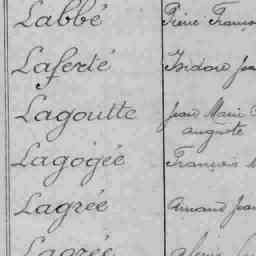 Labbé Pierre Franço
Laferté Isidore Jea
Lagoutte Jean Marie
auguste
Lagogée François
Lagrée Armand Jean
Lagrée alexis